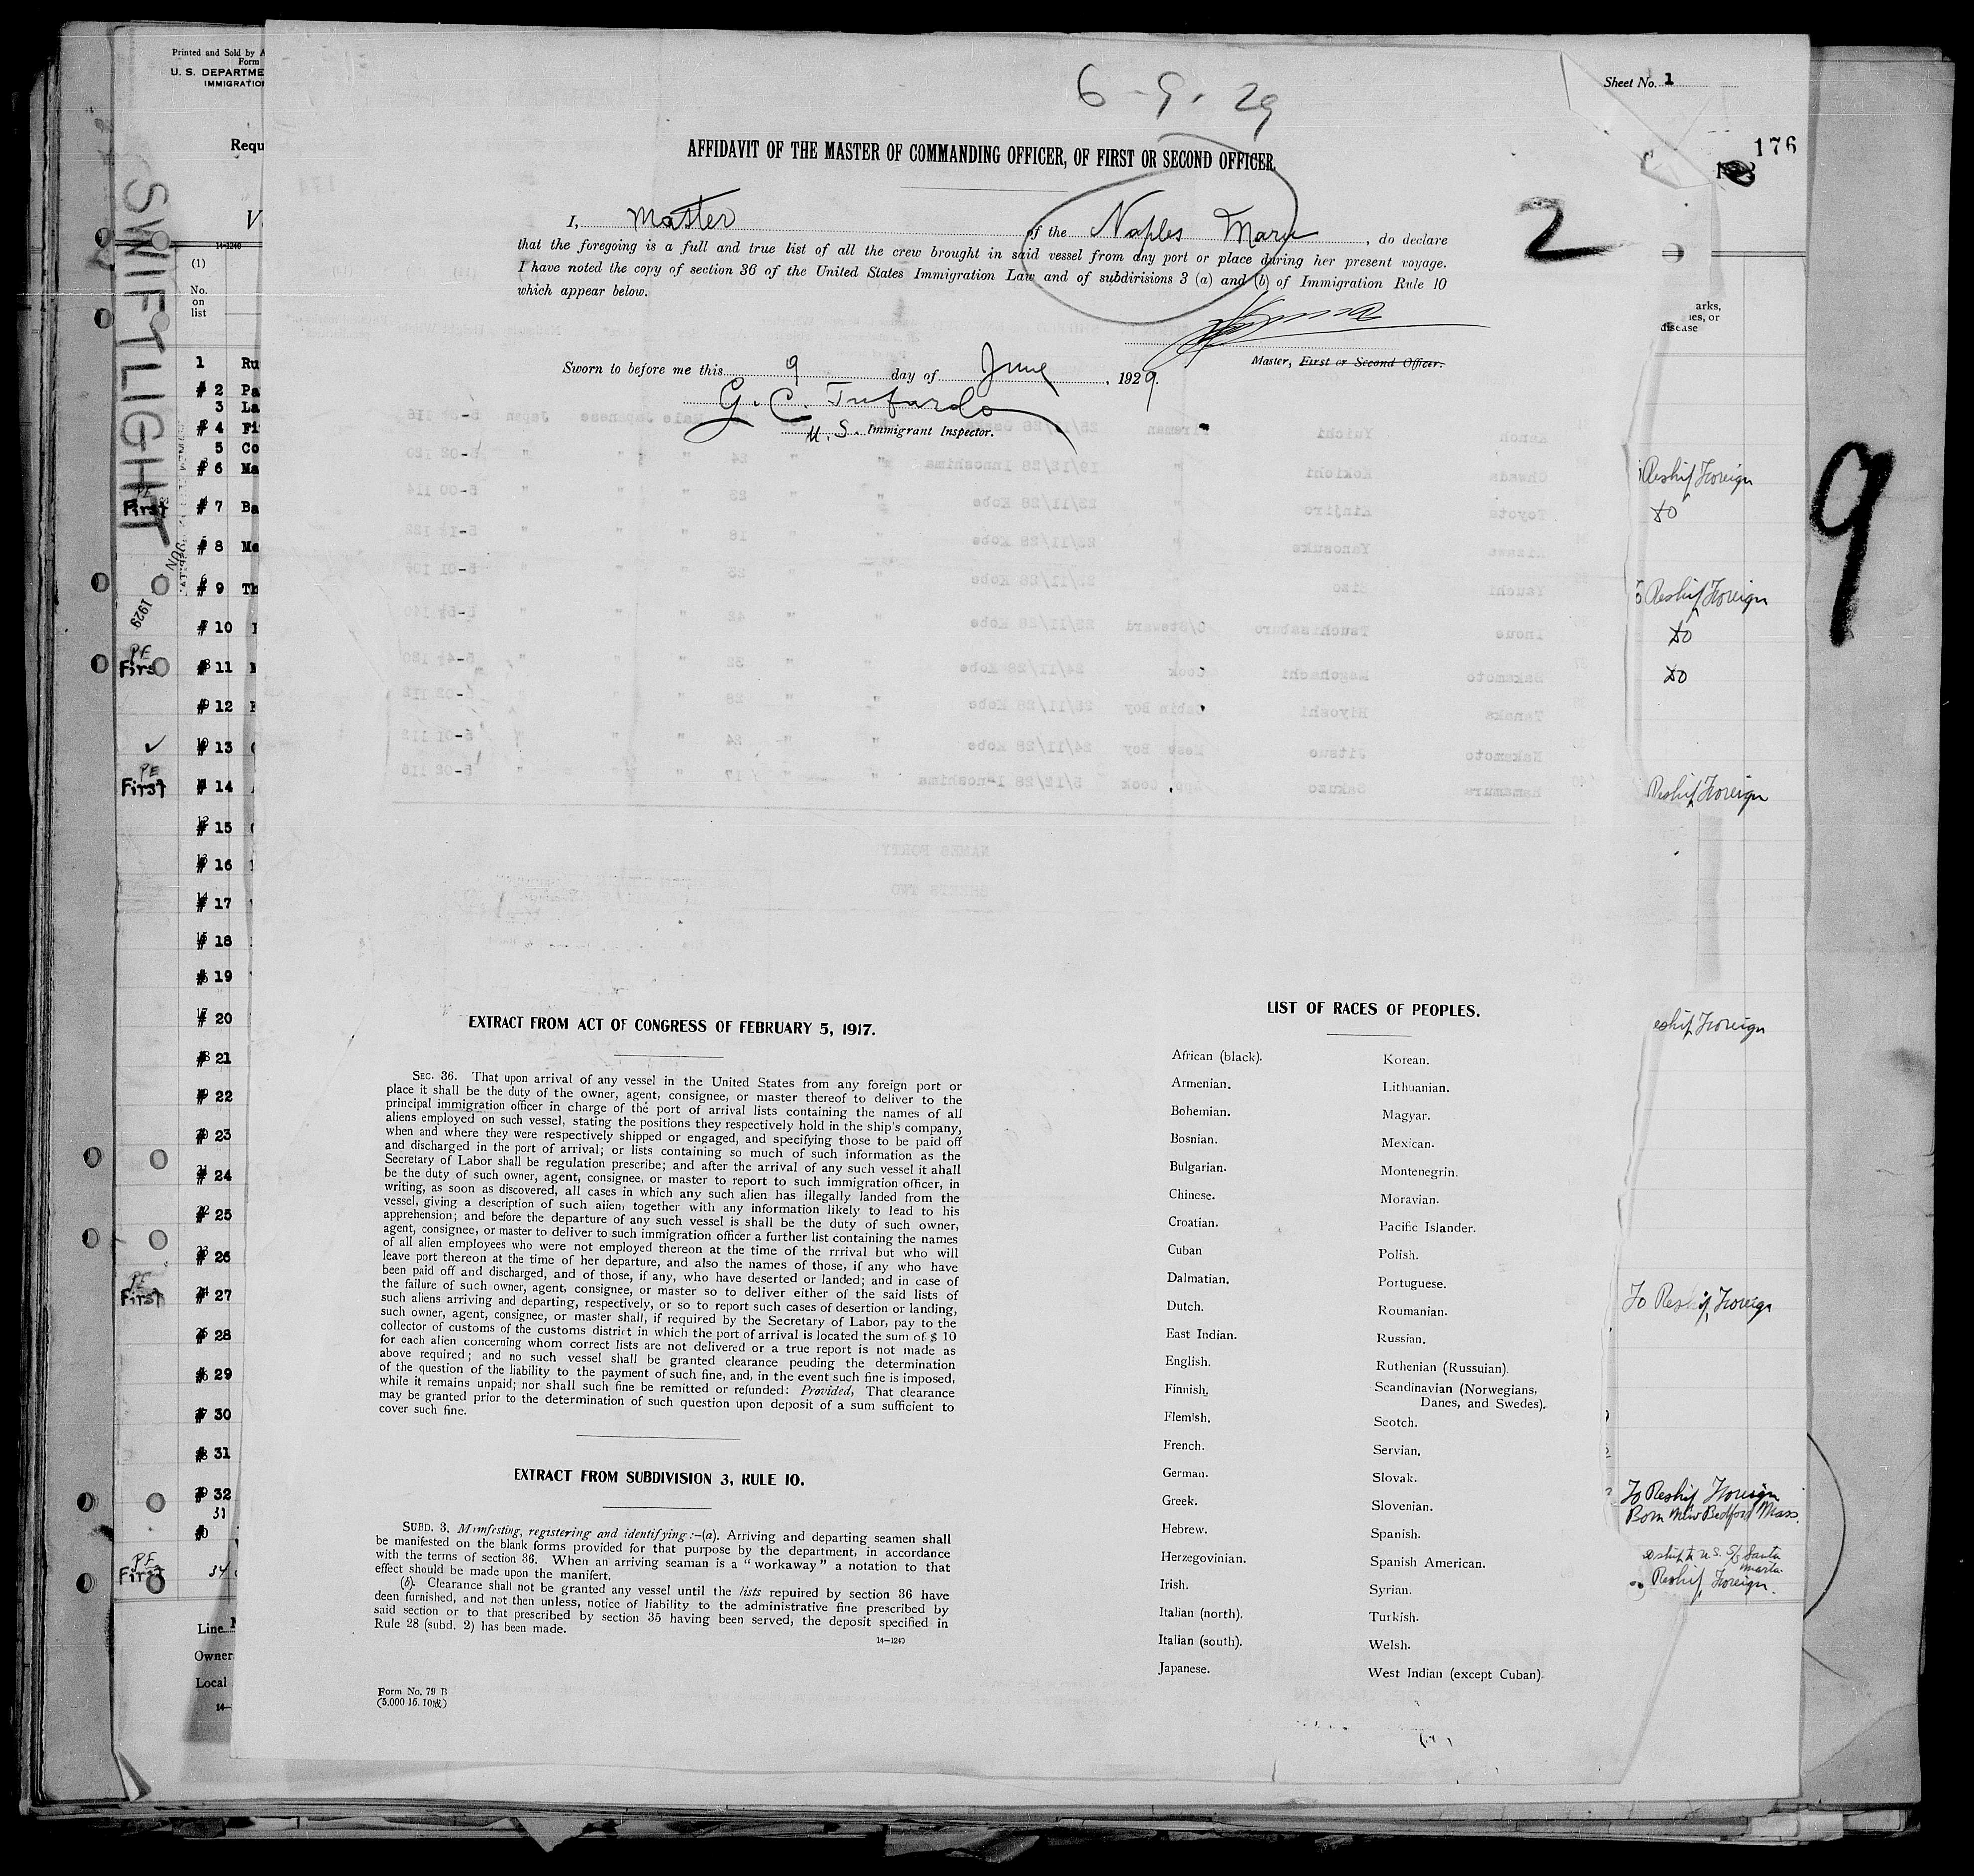 Printed and Sold by
Form
U. S. DEPARTME
IMMIGRATIO
Requ
SWIFTLIGHT
14-1240
(1)
No.
on
list
1 Ru
# 2 Pa
3 La
# 4 Fi
5 Co
# 6 Ma
PE
First # 7 Ba
# 8 Me
# 9 Th
1929
# 10
PE
First # 11
# 12
✓ # 13
PE
First # 14
# 15
# 16
# 17
# 18
# 19
# 20
# 21
# 22
# 23
# 24
# 25
# 26
PE
First # 27
# 28
# 29
# 30
# 31
# 32
PE
First 34
Line
Owner
Local
14-
6-9-29
Sheet No. 1
176
AFFIDAVIT OF THE MASTER OF COMMANDING OFFICER, OF FIRST OR SECOND OFFICER.
2
I, Master of the Naples Maru, do declare
that the foregoing is a full and true list of all the crew brought in said vessel from any port or place during her present voyage.
I have noted the copy of section 36 of the United States Immigration Law and of subdirisions 3 (a) and (b) of Immigration Rule 10
which appear below.
Master, First or Second Officer.
Sworn to before me this 9 day of June, 1929.
G. C. Tufardo
U. S. Immigrant Inspector.
arks,
ies, or
disease
Reship Foreign
do
9
Reship Foreign
do
do
Reship Foreign
eship Foreign
To Reship Foreign
To Reship Foreign
Born New Bedford Mass.
Reship Foreign.
NAMES FORTY
SHEETS TWO
EXTRACT FROM ACT OF CONGRESS OF FEBRUARY 5, 1917.
SEC. 36. That upon arrival of any vessel in the United States from any foreign port or
place it shall be the duty of the owner, agent, consignee, or master thereof to deliver to the
principal immigration officer in charge of the port of arrival lists containing the names of all
aliens employed on such vessel, stating the positions they respectively hold in the ship's company,
when and where they were respectively shipped or engaged, and specifying those to be paid off
and discharged in the port of arrival; or lists containing so much of such information as the
Secretary of Labor shall be regulation prescribe; and after the arrival of any such vessel it ahall
be the duty of such owner, agent, consignee, or master to report to such immigration officer, in
writing, as soon as discovered, all cases in which any such alien has illegally landed from the
vessel, giving a description of such aiien, together with any information likely to lead to his
apprehension; and before the departure of any such vessel is shall be the duty of such owner,
agent, consignee, or master to deliver to such immigration officer a further list containing the names
of all alien employees who were not employed thereon at the time of the rrrival but who will
leave port thereon at the time of her departure, and also the names of those, if any who have
been paid off and discharged, and of those, if any, who have deserted or landed; and in case of
the failure of such owner, agent, consignee, or master so to deliver either of the said lists of
such aliens arriving and departing, respectively, or so to report such cases of desertion or landing,
such owner, agent, consignee, or master shall, if required by the Secretary of Labor, pay to the
collector of customs of the customs district in which the port of arrival is located the sum of $ 10
for each alien concerning whom correct lists are not delivered or a true report is not made as
above required; and no such vessel shall be granted clearance peuding the determination
of the question of the liability to the payment of such fine, and, in the event such fine is imposed,
while it remains unpaid; nor shall such fine be remitted or refunded: Provided, That clearance
may be granted prior to the determination of such question upon deposit of a sum sufficient to
cover such fine.
EXTRACT FROM SUBDIVISION 3, RULE 10.
SUBD. 3. Mimfesting, registering and identifying:-(a). Arriving and departing seamen shall
be manifested on the blank forms provided for that purpose by the department, in accordance
with the terms of section 36. When an arriving seaman is a "workaway" a notation to that
effect should be made upon the manifert.
(b). Clearance shall not be granted any vessel until the lists repuired by section 36 have
deen furnished, and not then unless, notice of liability to the administrative fine prescribed by
said section or to that prescribed by section 35 having been served, the deposit specified in
Rule 28 (subd. 2) has been made.
14-1240
Form No. 79 B
(5.000 15. 10成)
LIST OF RACES OF PEOPLES.
African (black).
Armenian.
Bohemian.
Bosnian.
Bulgarian.
Chinese.
Croatian.
Cuban
Dalmatian.
Dutch.
East Indian.
English.
Finnish.
Flemish.
French.
German.
Greek.
Hebrew.
Herzegovinian.
Irish.
Italian (north).
Italian (south).
Japanese.
Korean.
Lithuanian.
Magyar.
Mexican.
Montenegrin.
Moravian.
Pacific Islander.
Polish.
Portuguese.
Roumanian.
Russian.
Ruthenian (Russuian).
Scandinavian (Norwegians,
Danes, and Swedes).
Scotch.
Servian.
Slovak.
Slovenian.
Spanish.
Spanish American.
Syrian.
Turkish.
Welsh.
West Indian (except Cuban)